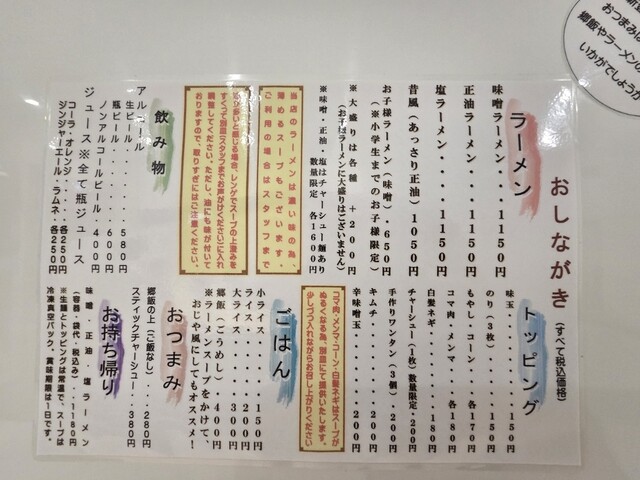 おしながき(すべて税込価格)
ラーメン
味噌ラーメン・・・1150円
正油ラーメン・・・1150円
塩ラーメン・・・・1150円
昔風(あっさり正油)1050円
お子様ラーメン(味噌)・650円
(※小学生までのお子様限定)
※大盛りは各種 +200円
(お子様ラーメンに大盛りはございません)
※味噌・正油・塩はチャーシュー麺あり
数量限定 各1600円
当店のラーメンは濃い味の為、
薄めるスープもございます。
ご利用の場合はスタッフまで
すくって別皿(スタッフまでお声がけください)に入れ
調整してください。ただし、油にも味が付いて
おりますので、取りすぎにはご注意ください。
飲み物
アルコール
生ビール・・・・・・580円
瓶ビール・・・・・・600円
ノンアルコールビール・400円
ジュース※全て瓶ジュース
コーラ・オレンジ・・・・各250円
ジンジャーエール・ラムネ・各250円
トッピング
味玉・・・・・・・150円
のり(3枚)・・・・150円
もやし・コーン・・各170円
コマ肉・メンマ・・各180円
白髪ネギ・・・・・180円
チャーシュー(1枚)数量限定・200円
手作りワンタン(3個)・200円
キムチ・・・・・・200円
辛味噌玉・・・・・200円
コマ肉・メンマ・コーン・白髪ネギはスープが
ぬるくなる為、別皿にて提供いたします。
少しづつ入れながらお召し上がりください
ごはん
小ライス・・・・150円
ライス・・・・・200円
大ライス・・・・300円
郷飯(ごうめし)・400円
※ラーメンスープをかけて、
おじや風にしてもオススメ!
おつまみ
郷飯の上(ご飯なし)・・280円
スティックチャーシュー・・380円
お持ち帰り
味噌・正油・塩ラーメン
(容器・袋代・税込み)・・1180円
※生麺とトッピングは常温で、スープは
冷凍真空パック、賞味期限は1日です。
おつまみは
郷飯やラーメンの
いかがでしょうか